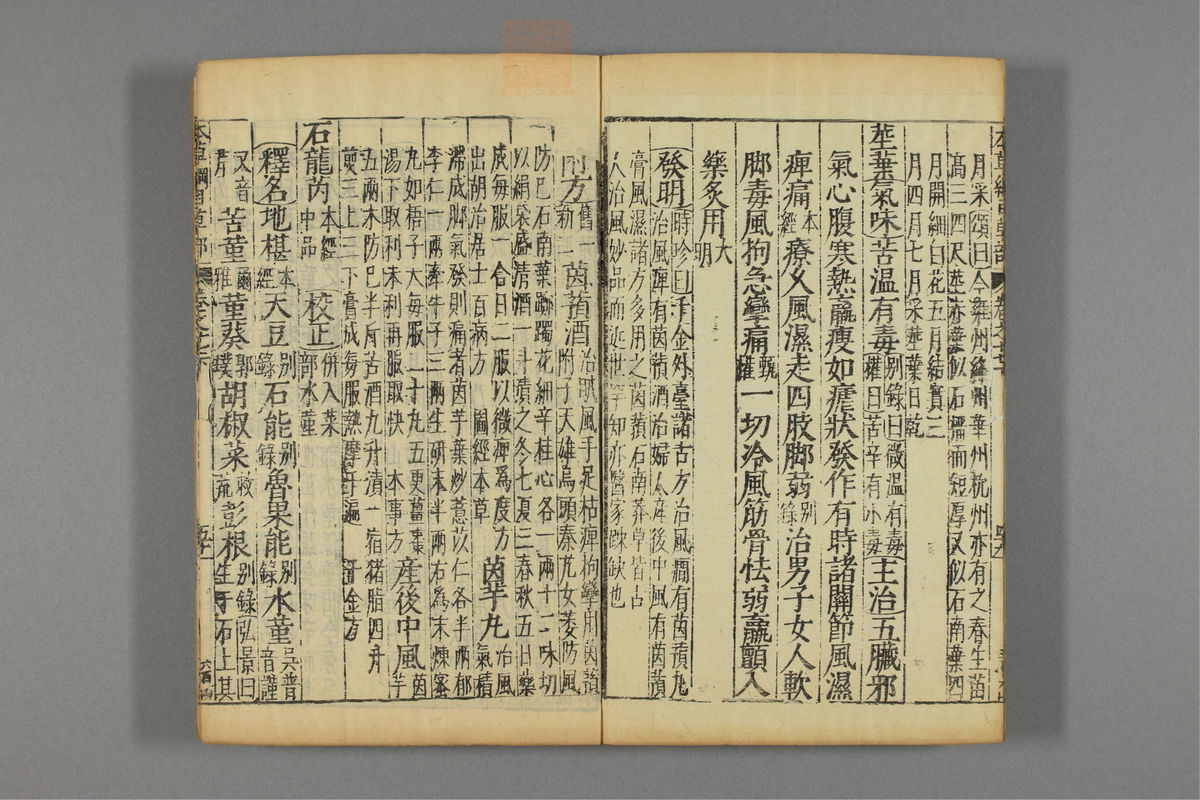 月采頌曰今雍州絳州華州杭州亦有之春生苗
高三四尺莖赤葉似石榴而短厚又似石南葉四
月開細白花五月結實三
月四月七月采莖葉日乾
莖葉氣味苦溫有毒別錄曰微溫有毒
權曰苦辛有小毒主治五臟邪
氣心腹寒熱羸瘦如瘧狀發作有時諸關節風濕
痺痛本經療久風濕走四肢脚弱別錄治男子女人軟
脚毒風拘急攣痛甄權一切冷風筋骨怯弱羸顫入
藥炙用大明
發明時珍曰千金外臺諸古方治風癇有茵蕷丸
治風痺有茵蕷酒治婦人產後中風有茵蕷
膏風濕諸方多用之茵蕷石南莽草皆古
人治風妙品而近世罕知亦醫家疎缺也
附方舊一新一茵蕷酒治賊風手足枯痺拘攣用茵蕷
附子天雄烏頭秦艽女萎防風
防已石南葉躑躅花細辛桂心各一兩十二味切
以絹袋盛清酒一斗漬之冬七夏三春秋五日藥
成每服一合日二服以微痺爲度方
出胡洽居士百病方 圖經本草 茵芋丸治風
氣積
滯成脚氣發則痛者茵芋葉炒薏苡仁各半兩郁
李仁一兩牽牛子三兩生研末半兩右爲末煉蜜
丸如梧子大每服二十丸五更薑棗
湯下取利未利再服取快 本事方 產後中風茵
芋
五兩木防已半斤苦酒九升漬一宿豬脂四升
煎三上三下膏成每服熱摩千遍 千金方
石龍芮本經中品 校正併入菜部水菫
釋名地椹本經天豆別錄石能別錄魯果能別錄水菫吳普
音謹
又音芹苦菫爾雅菫葵郭璞胡椒菜救荒彭根別錄弘景曰
生于石上其